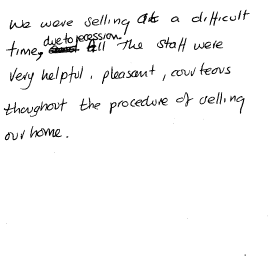 We were selling at a difficult
time, due to recession. All the staff were
very helpful, pleasant, courteous
thoughout the procedure of selling
our home.